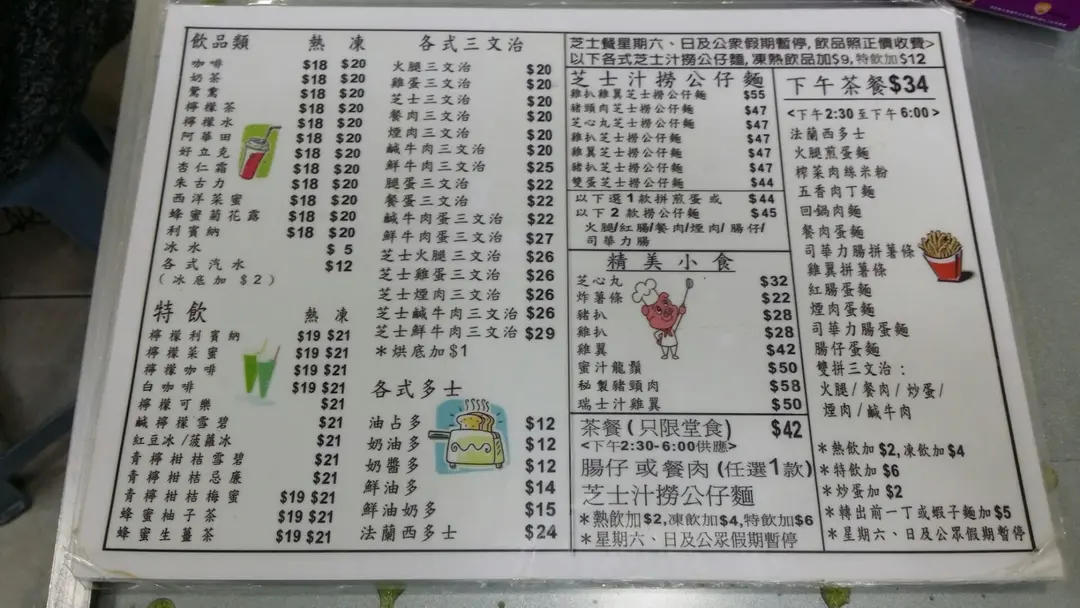 飲品類 熱 凍
咖啡 $18 $20
奶茶 $18 $20
鴛鴦 $18 $20
檸檬茶 $18 $20
檸檬水 $18 $20
阿華田 $18 $20
好立克 $18 $20
杏仁霜 $18 $20
朱古力 $18 $20
西洋菜蜜 $18 $20
蜂蜜菊花露 $18 $20
利賓納 $18 $20
冰水 $5
各式汽水 $12
(冰底加 $2)
特飲 熱 凍
檸檬利賓納 $19 $21
檸檬菜蜜 $19 $21
檸檬咖啡 $19 $21
白咖啡 $19 $21
檸檬可樂 $21
鹹檸檬雪碧 $21
紅豆冰/菠蘿冰 $21
青檸柑桔雪碧 $21
青檸柑桔忌廉 $21
青檸柑桔梅蜜 $19 $21
蜂蜜柚子茶 $19 $21
蜂蜜生薑茶 $19 $21
各式三文治
火腿三文治 $20
雞蛋三文治 $20
芝士三文治 $20
餐肉三文治 $20
煙肉三文治 $20
鹹牛肉三文治 $20
鮮牛肉三文治 $25
腿蛋三文治 $22
餐蛋三文治 $22
鹹牛肉蛋三文治 $22
鮮牛肉蛋三文治 $27
芝士火腿三文治 $26
芝士雞蛋三文治 $26
芝士煙肉三文治 $26
芝士鹹牛肉三文治 $26
芝士鮮牛肉三文治 $29
*烘底加$1
各式多士
油占多 $12
奶油多 $12
奶醬多 $12
鮮油多 $14
鮮油奶多 $15
法蘭西多士 $24
芝士餐星期六、日及公衆假期暫停,飲品照正價收費>
以下各式芝士汁撈公仔麵,凍熱飲品加$9,特飲加$12
芝士汁撈公仔麵
雞扒雞翼芝士撈公仔麵 $55
豬頸肉芝士撈公仔麵 $47
芝心丸芝士撈公仔麵 $47
雞扒芝士撈公仔麵 $47
雞翼芝士撈公仔麵 $47
豬扒芝士撈公仔麵 $47
雙蛋芝士撈公仔麵 $44
以下選1款拼煎蛋或 $44
以下2款撈公仔麵 $45
火腿/紅腸/餐肉/煙肉/腸仔/
司華力腸
精美小食
芝心丸 $32
炸薯條 $22
豬扒 $28
雞扒 $28
雞翼 $42
蜜汁龍鬚 $50
秘製豬頸肉 $58
瑞士汁雞翼 $50
茶餐(只限堂食) $42
<下午2:30-6:00供應>
腸仔或餐肉(任選1款)
芝士汁撈公仔麵
*熱飲加$2,凍飲加$4,特飲加$6
*星期六、日及公眾假期暫停
下午茶餐$34
<下午2:30至下午6:00>
法蘭西多士
火腿煎蛋麵
榨菜肉絲米粉
五香肉丁麵
回鍋肉麵
餐肉蛋麵
司華力腸拼薯條
雞翼拼薯條
紅腸蛋麵
煙肉蛋麵
司華力腸蛋麵
腸仔蛋麵
雙拼三文治:
火腿/餐肉/炒蛋/
煙肉/鹹牛肉
*熱飲加$2,凍飲加$4
*特飲加$6
*炒蛋加$2
*轉出前一丁或蝦子麵加$5
*星期六、日及公眾假期暫停